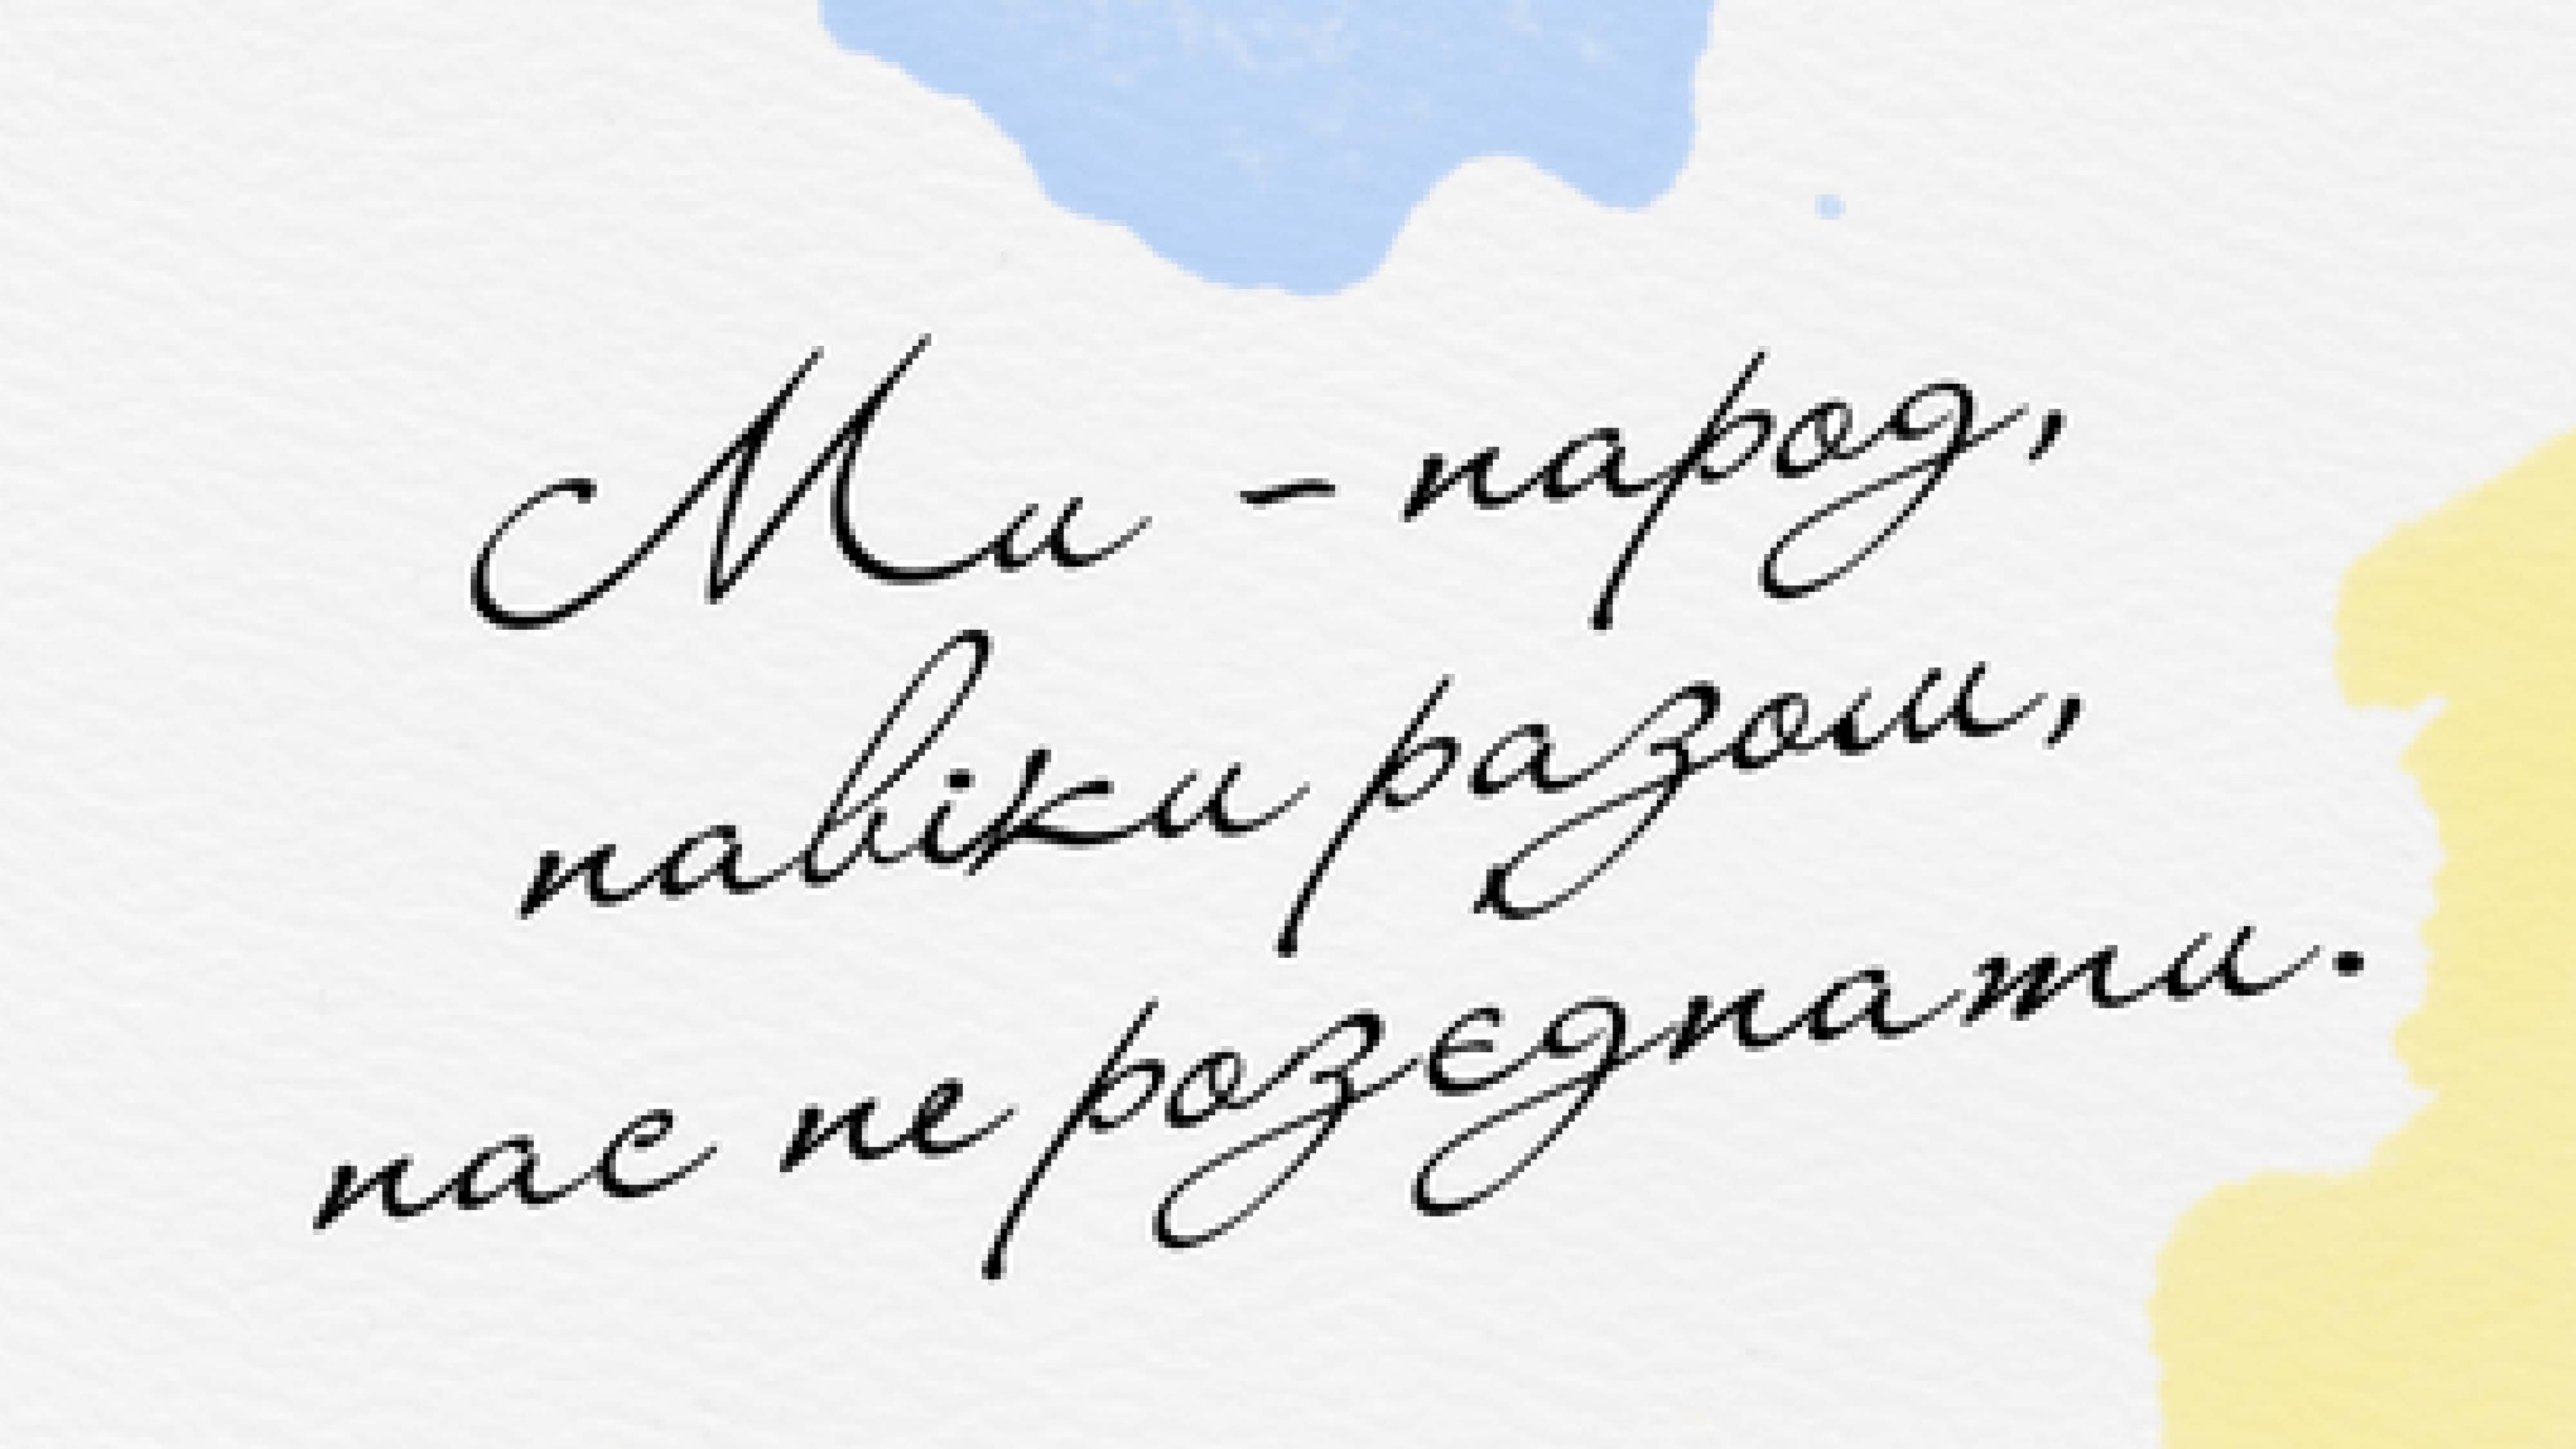 Ми - народ,
навіки разом,
нас не розєднати.